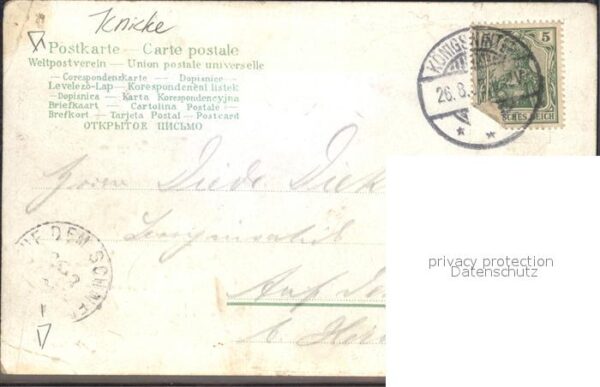 Knicke
Postkarte – Carte postale
Weltpostverein – Union postale universelle
– Corespondenzkarte – Dopisnice –
Levelezö-Lap – Korespondeneni listek
– Dopisnica – Karta Korespondencyjna
Briefkaart – Cartolina Postale –
Brefkort – Tarjeta Postal – Postcard
ОТКРЫТОЕ ПИСЬМО
KÖNIGSWINTE
26.8.
5
SCHES REICH
Herrn Diede Diek
Auf de
b.
UF DEM SCHNEE
privacy protection
Datenschutz